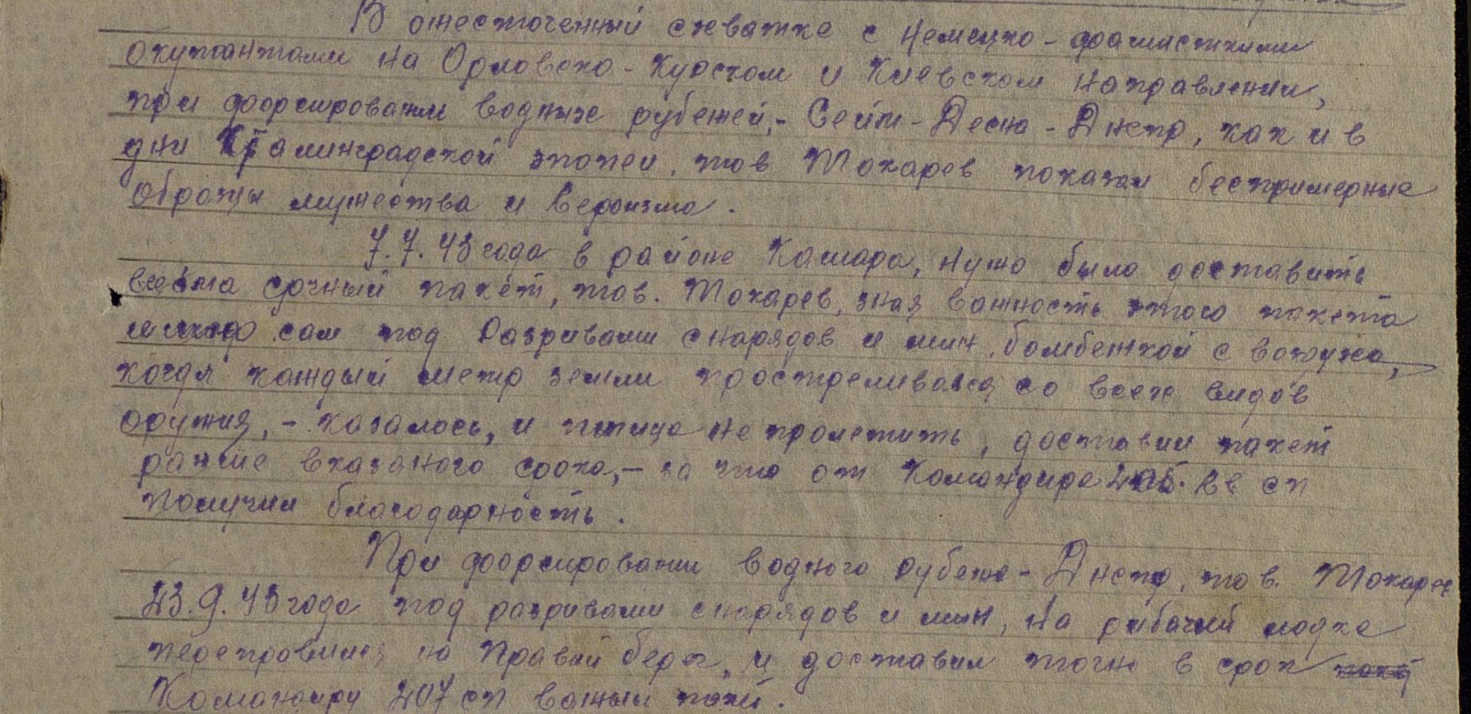 В ожесточенный схватке с Немецко-фашисткими
Окупантами на Орловско-Курском и Киевском направлении,
при форсировании водных рубежей,- Сейм-Десна-Днепр, как и в
дни Сталинградской эпопеи, тов Токарев показал беспримерные
образцы мужества и Героизма.
7.7.43 года в районе Кашара, нужо было доставить
весьма срочный пакет, тов. Токарев, зная важность этого пакета
сам под Разривами снарядов и мин, бомбежкой с воздуха,
когда каждый метр земли простреливался со всех видов
оружия, - казалось, и птица не пролетить, доставил пакет
раньше вказаного срока, - за что от Командира 205 Гв сп
получил благодарность.
При форсировании водного рубежа - Днепр, тов. Токарев
23.9.43 года под разривами снарядов и мин, на рибачий лодке
переправился на Правий берег, и доставил точно в срок
Командиру 207 сп важный пакет.